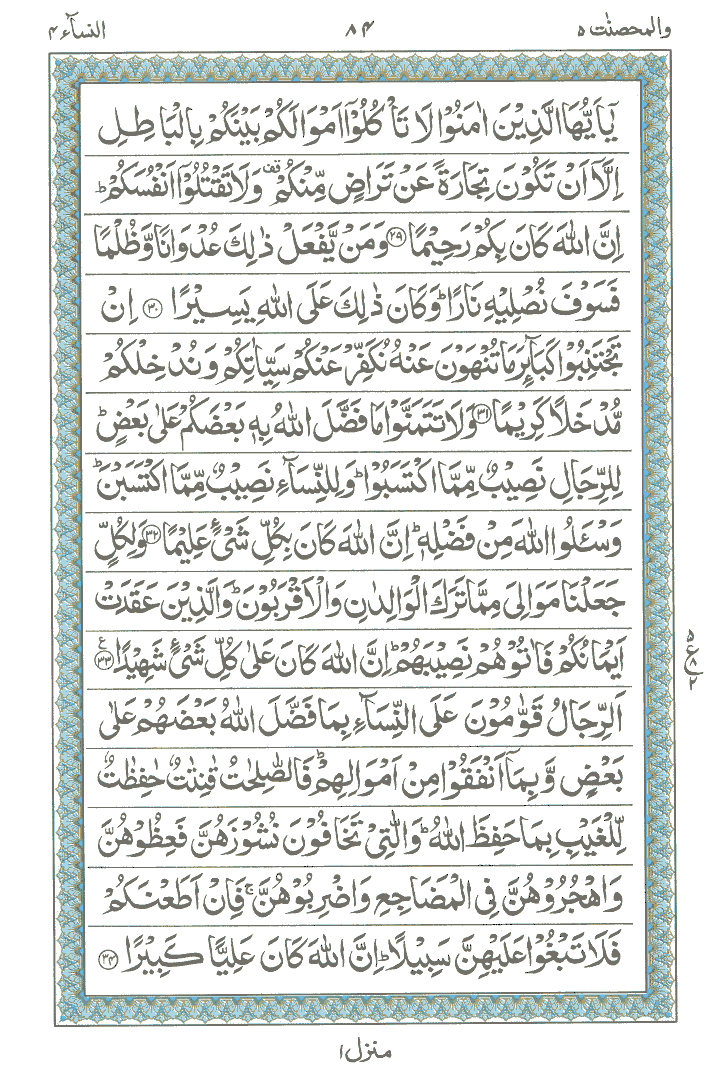 والمحصنٰت ۵ ۸۴ النسآء ۴
یٰۤاَیُّهَا الَّذِیْنَ اٰمَنُوْا لَا تَاْكُلُوْۤا اَمْوَالَكُمْ بَیْنَكُمْ بِالْبَاطِلِ
اِلَّاۤ اَنْ تَكُوْنَ تِجَارَةً عَنْ تَرَاضٍ مِّنْكُمْ ۫ وَلَا تَقْتُلُوْۤا اَنْفُسَكُمْ ؕ
اِنَّ اللّٰهَ كَانَ بِكُمْ رَحِیْمًا ﴿۲۹﴾ وَمَنْ یَّفْعَلْ ذٰلِكَ عُدْوَانًا وَّظُلْمًا
فَسَوْفَ نُصْلِیْهِ نَارًا ؕ وَكَانَ ذٰلِكَ عَلَی اللّٰهِ یَسِیْرًا ﴿۳۰﴾ اِنْ
تَجْتَنِبُوْا كَبَآىِٕرَ مَا تُنْهَوْنَ عَنْهُ نُكَفِّرْ عَنْكُمْ سَیِّاٰتِكُمْ وَنُدْخِلْكُمْ
مُّدْخَلًا كَرِیْمًا ﴿۳۱﴾ وَلَا تَتَمَنَّوْا مَا فَضَّلَ اللّٰهُ بِهٖ بَعْضَكُمْ عَلٰی بَعْضٍ ؕ
لِلرِّجَالِ نَصِیْبٌ مِّمَّا اكْتَسَبُوْا ؕ وَلِلنِّسَآءِ نَصِیْبٌ مِّمَّا اكْتَسَبْنَ ؕ
وَسْـَٔلُوا اللّٰهَ مِنْ فَضْلِهٖ ؕ اِنَّ اللّٰهَ كَانَ بِكُلِّ شَیْءٍ عَلِیْمًا ﴿۳۲﴾ وَلِكُلٍّ
جَعَلْنَا مَوَالِیَ مِمَّا تَرَكَ الْوَالِدٰنِ وَالْاَقْرَبُوْنَ ؕ وَالَّذِیْنَ عَقَدَتْ
اَیْمَانُكُمْ فَاٰتُوْهُمْ نَصِیْبَهُمْ ؕ اِنَّ اللّٰهَ كَانَ عَلٰی كُلِّ شَیْءٍ شَهِیْدًا ﴿۳۳﴾ ع
ع ۵ ۸ ۲
اَلرِّجَالُ قَوّٰمُوْنَ عَلَی النِّسَآءِ بِمَا فَضَّلَ اللّٰهُ بَعْضَهُمْ عَلٰی
بَعْضٍ وَّبِمَاۤ اَنْفَقُوْا مِنْ اَمْوَالِهِمْ ؕ فَالصّٰلِحٰتُ قٰنِتٰتٌ حٰفِظٰتٌ
لِّلْغَیْبِ بِمَا حَفِظَ اللّٰهُ ؕ وَالّٰتِیْ تَخَافُوْنَ نُشُوْزَهُنَّ فَعِظُوْهُنَّ
وَاهْجُرُوْهُنَّ فِی الْمَضَاجِعِ وَاضْرِبُوْهُنَّ ۚ فَاِنْ اَطَعْنَكُمْ
فَلَا تَبْغُوْا عَلَیْهِنَّ سَبِیْلًا ؕ اِنَّ اللّٰهَ كَانَ عَلِیًّا كَبِیْرًا ﴿۳۴﴾
منزل ۱